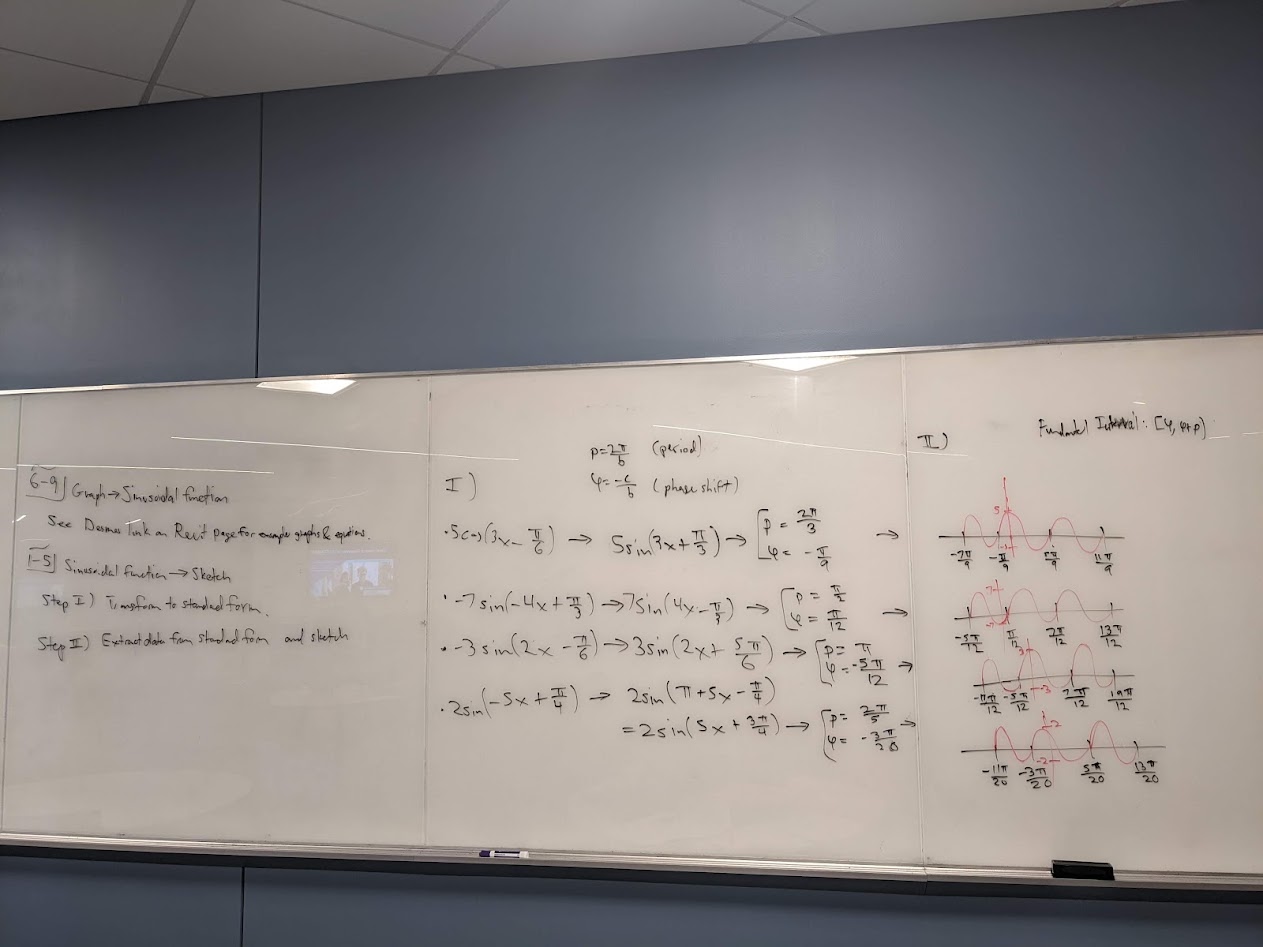 6-9) Graph → Sinusoidal function
See Desmos Link on Recit page for example graphs & equations.
1-5) Sinusoidal function → Sketch
Step I) Transform to standard form.
Step II) Extract data from standard form and sketch
I)
p = 2π/b (period)
φ = -c/b (phase shift)
· 5cos(3x - π/6) → 5sin(3x + π/3) → [p = 2π/3 φ = -π/9 →
· -7sin(-4x + π/3) → 7sin(4x - π/3) → [p = π/2 φ = π/12 →
· -3sin(2x - π/6) → 3sin(2x + 5π/6) → [p = π φ = -5π/12 →
· 2sin(-5x + π/4) → 2sin(π + 5x - π/4)
= 2sin(5x + 3π/4) → [p = 2π/5 φ = -3π/20 →
II)
Fundamental Interval: [φ, φ+p)
5
-7π/9 -π/9 5π/9 11π/9
7
-7
-5π/12 π/12 7π/12 13π/12
3
-3
-5π/12 7π/12 19π/12
2
-2
-11π/20 -3π/20 5π/20 13π/20